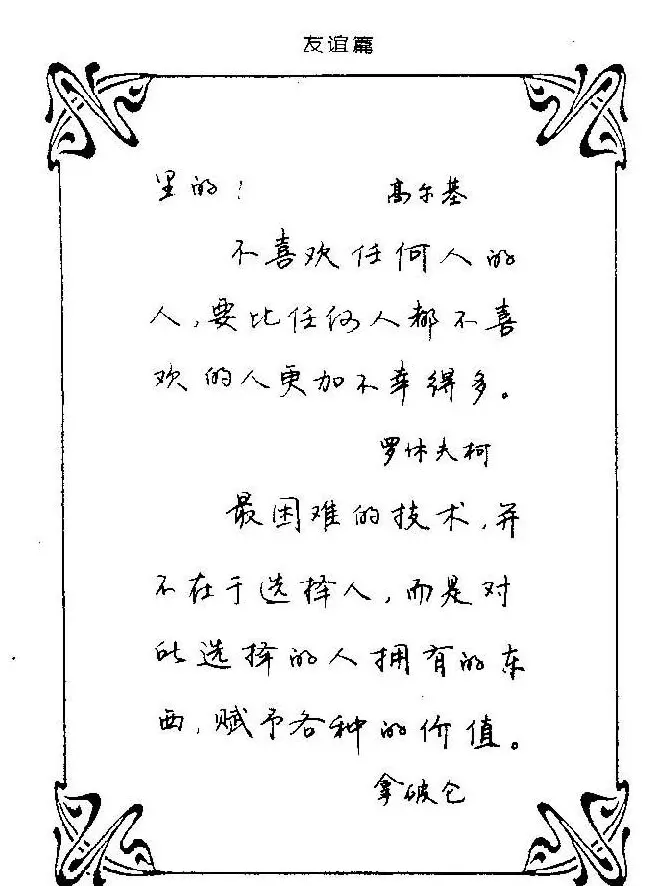 友谊篇
里的！ 高尔基
不喜欢任何人的
人，要比任何人都不喜
欢的人更加不幸得多。
罗休夫柯
最困难的技术，并
不在于选择人，而是对
此选择的人拥有的东
西，赋予各种的价值。
拿破仑